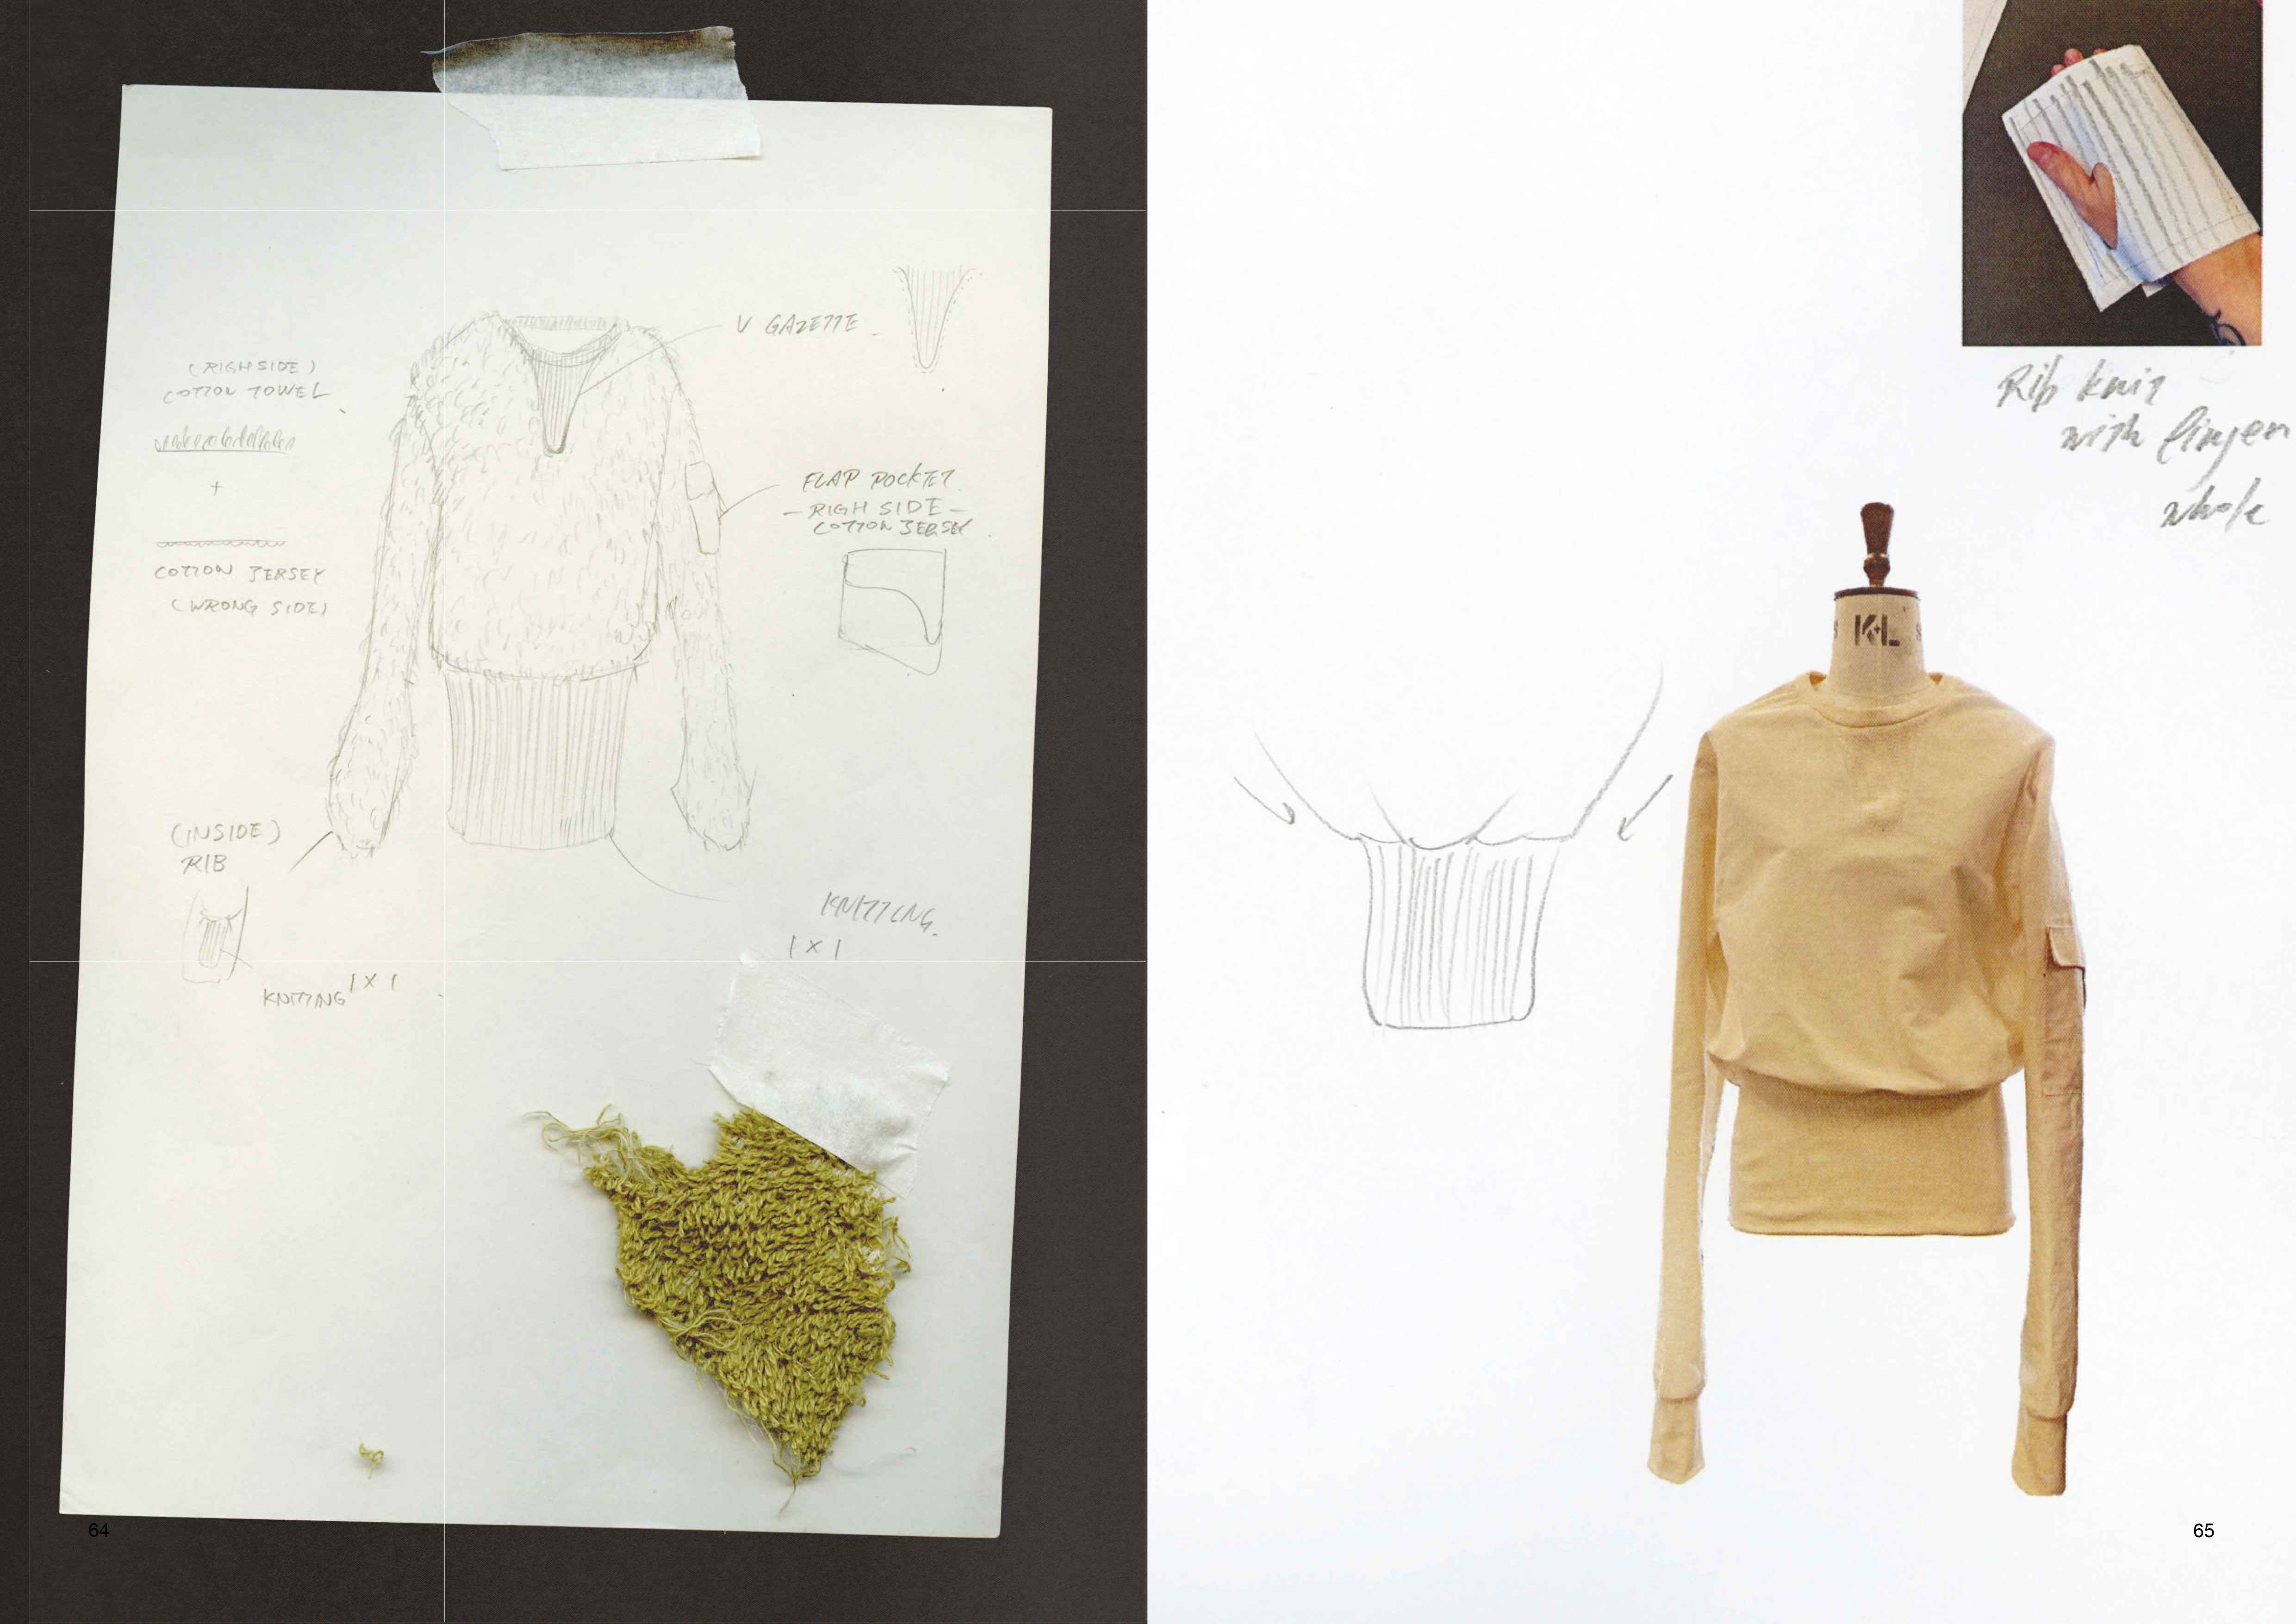 (RIGH SIDE)
COTTON TOWEL
+
COTTON JERSEY
(WRONG SIDE)
V GAZETTE
FLAP POCKET
- RIGH SIDE -
COTTON JERSEY
(INSIDE)
RIB
KNITTING 1 X 1
KNITTING
1 X 1
64
Rib knit
with finger
whole
K&L
65